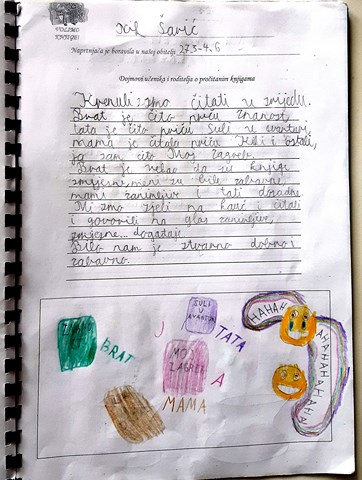 VOLIMO
KNJIGE!
Šarić
Naprtnjača je boravila u našoj obitelji 27.5-4.6
Dojmovi učenika i roditelja o pročitanim knjigama
Krenuli smo čitati u srijedu.
Brat je čito priču Znanost,
tata je čito priču Suli u avanturi,
mama je čitala priču Heidi i ostale,
ja sam čito Moj Zagreb.
Brat je rekao da su knjige
smiješne, meni su bile zabavne,
mami zanimljive i tati dosadne.
Mi smo sjeli na kauč i čitali
i govorili na glas zanimljive,
smiješne... događaje.
Bilo nam je stvarno dobro i
zabavno.
BRAT
JA
SULI
U
AVANTURI
TATA
MOJ
ZAGREB
MAMA
HAHAH
AHAHAHAHAHAHA